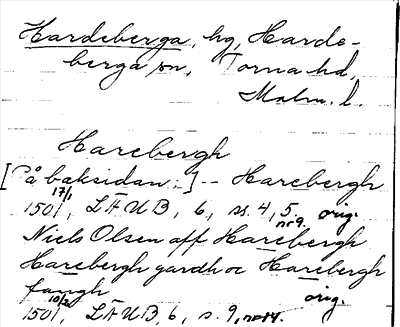 Hardeberga, hg, Harde-
berga sn, Torna hd,
Malm. l.
Harebergh
[På baksidan:] -- Harebergh
17/1
1501, LÄUB, 6, s. 4, 5, orig.
nr 9.
Niels Olsen aff Harebergh
Harebergh gardh oc Harebergh
fangh
10/2
orig.
1501, LÄUB, 6, s. 9, nr 14.